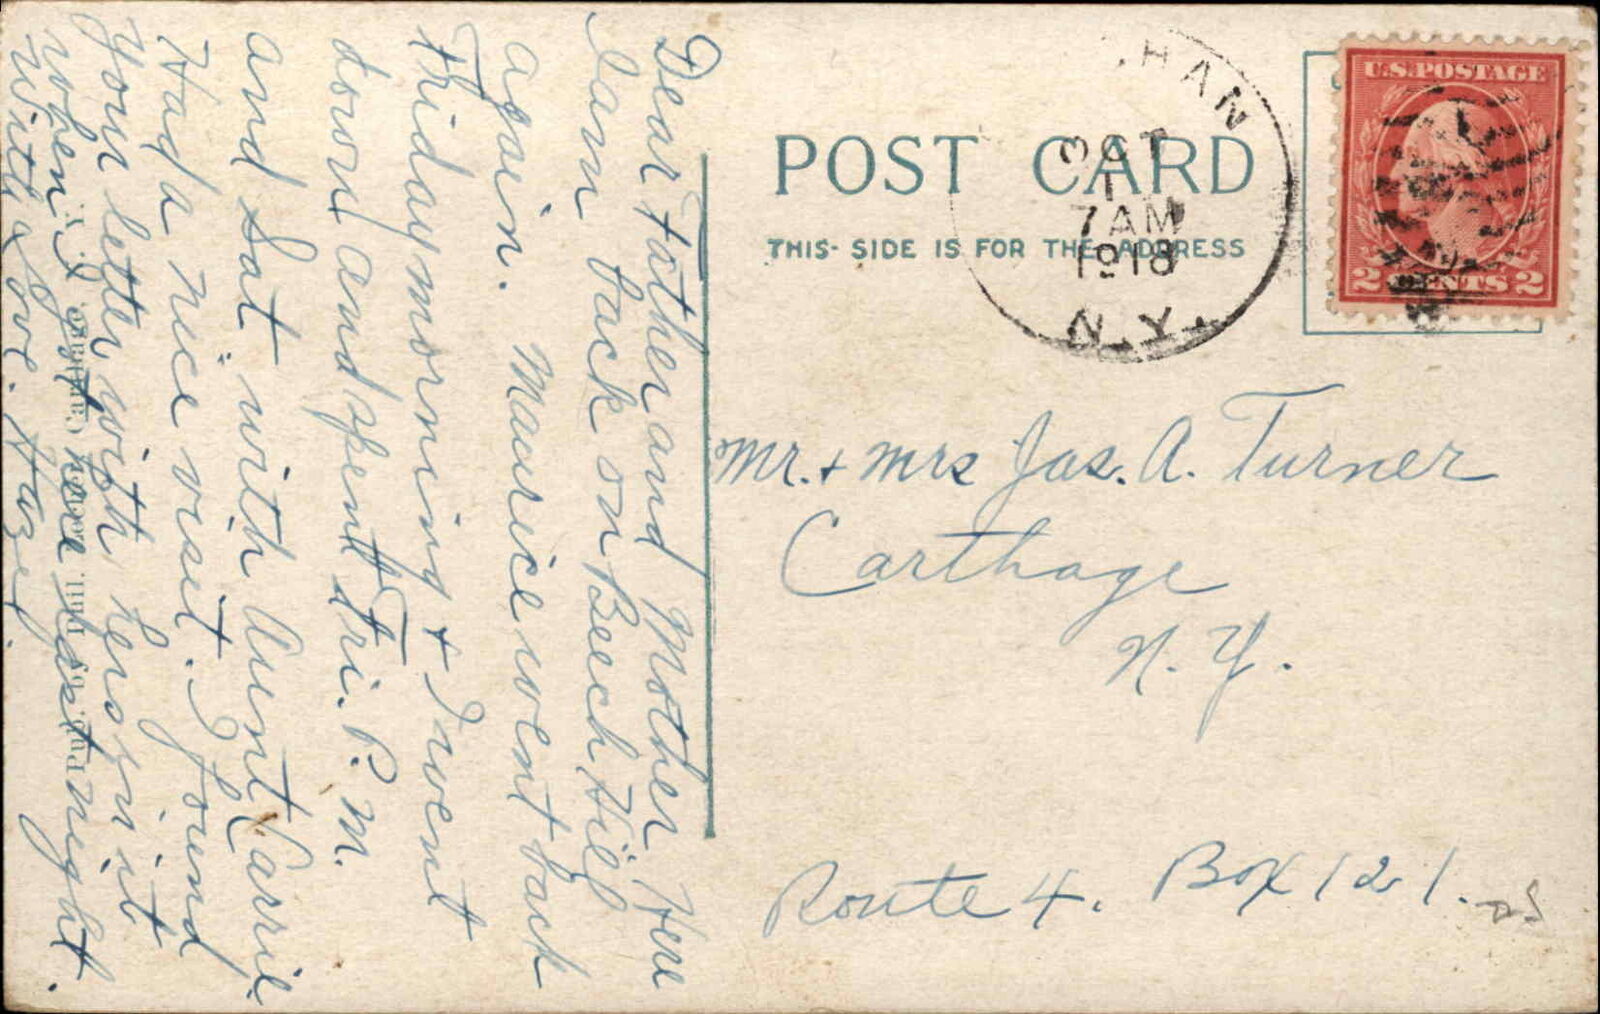 Dear Father and Mother Here
I am back on Beech Hill
again. Maurice went back
Friday morning + I went
down and spent Fri. P. M.
and Sat. with Aunt Carrie.
Had a nice visit. I found
your letter with hers in it
when I got here last night.
With love. Hazel.
POST CARD
THIS SIDE IS FOR THE ADDRESS
HAN
OCT
1
7 AM
1918
N.Y.
U.S. POSTAGE
2 CENTS 2
Mr. + Mrs Jas. A. Turner
Carthage
N. Y.
Route 4. Box 121.